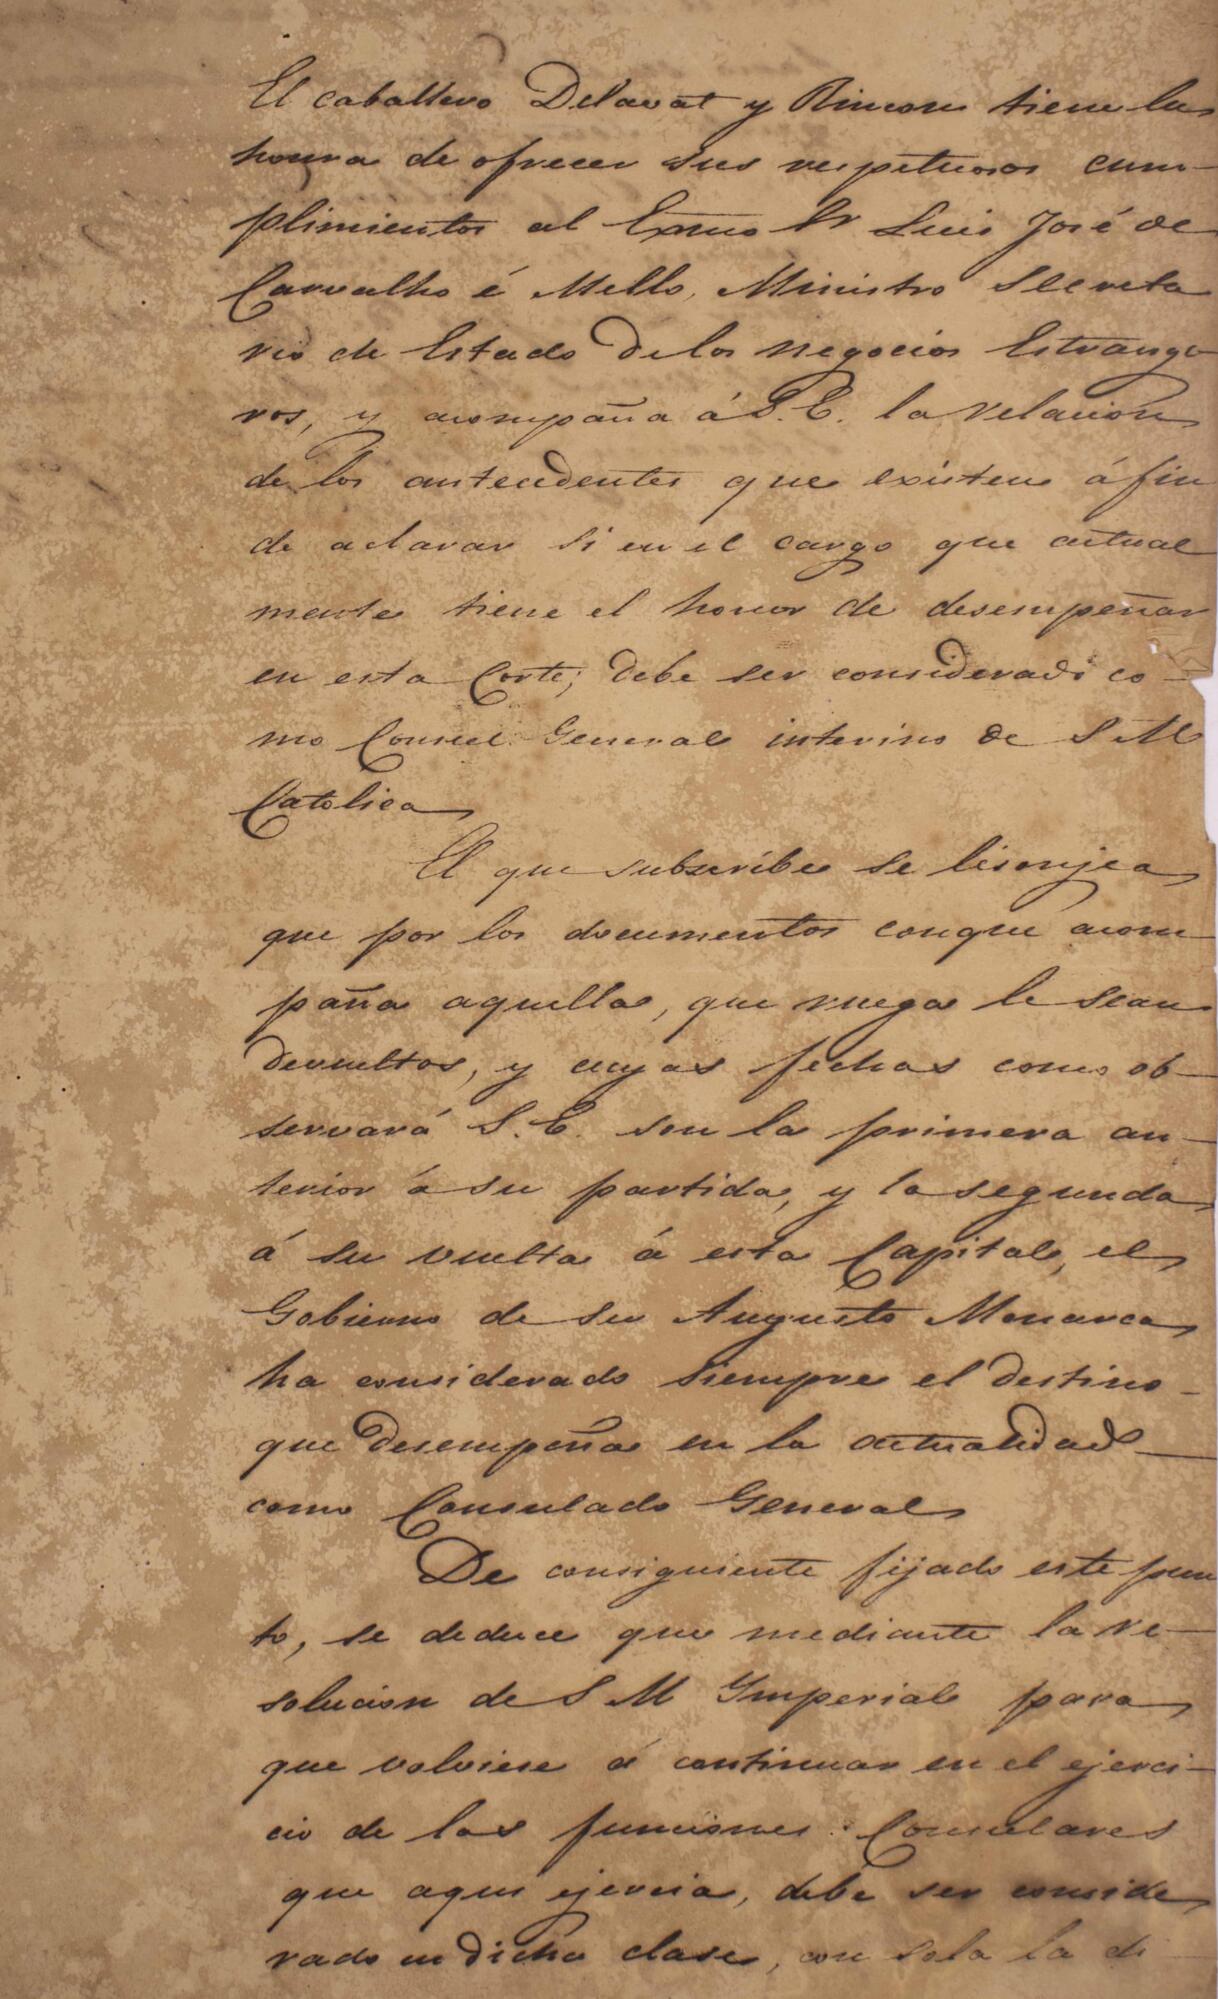 El caballero Delavat y Rincon tiene la
honra de ofrecer sus respetuosos cum-
plimientos al Exmo Sr Luis José de
Carvalho é Mello, Ministro Secreta
rio de Estado de los negocios Estrange
ros, y acompaña á S. E. la relacion
de los antecedentes que existen á fin
de aclarar si en el cargo que actual
mente tiene el honor de desempeñar
en esta Corte; debe ser considerado co-
mo Consul General interino de S M
Catolica
El que subscribe se lisonjea
que por los documentos conque acom-
paña aquella, que ruega le sean
devueltos, y cuyas fechas como ob-
servará S. E. son la primera an-
terior á su partida, y la segunda
á su vuelta á esta Capital, el
Gobierno de su Augusto Monarca
ha considerado siempre el destino-
que desempeña en la actualidad
como Consulado General
De consiguiente fijado este pun
to, se deduce que mediante la re-
solucion de S M Ymperial para
que volviese á continuar en el ejerci-
cio de las funciones Consulares
que aqui ejercia, debe ser conside
rado en dicha clase, con sola la di-